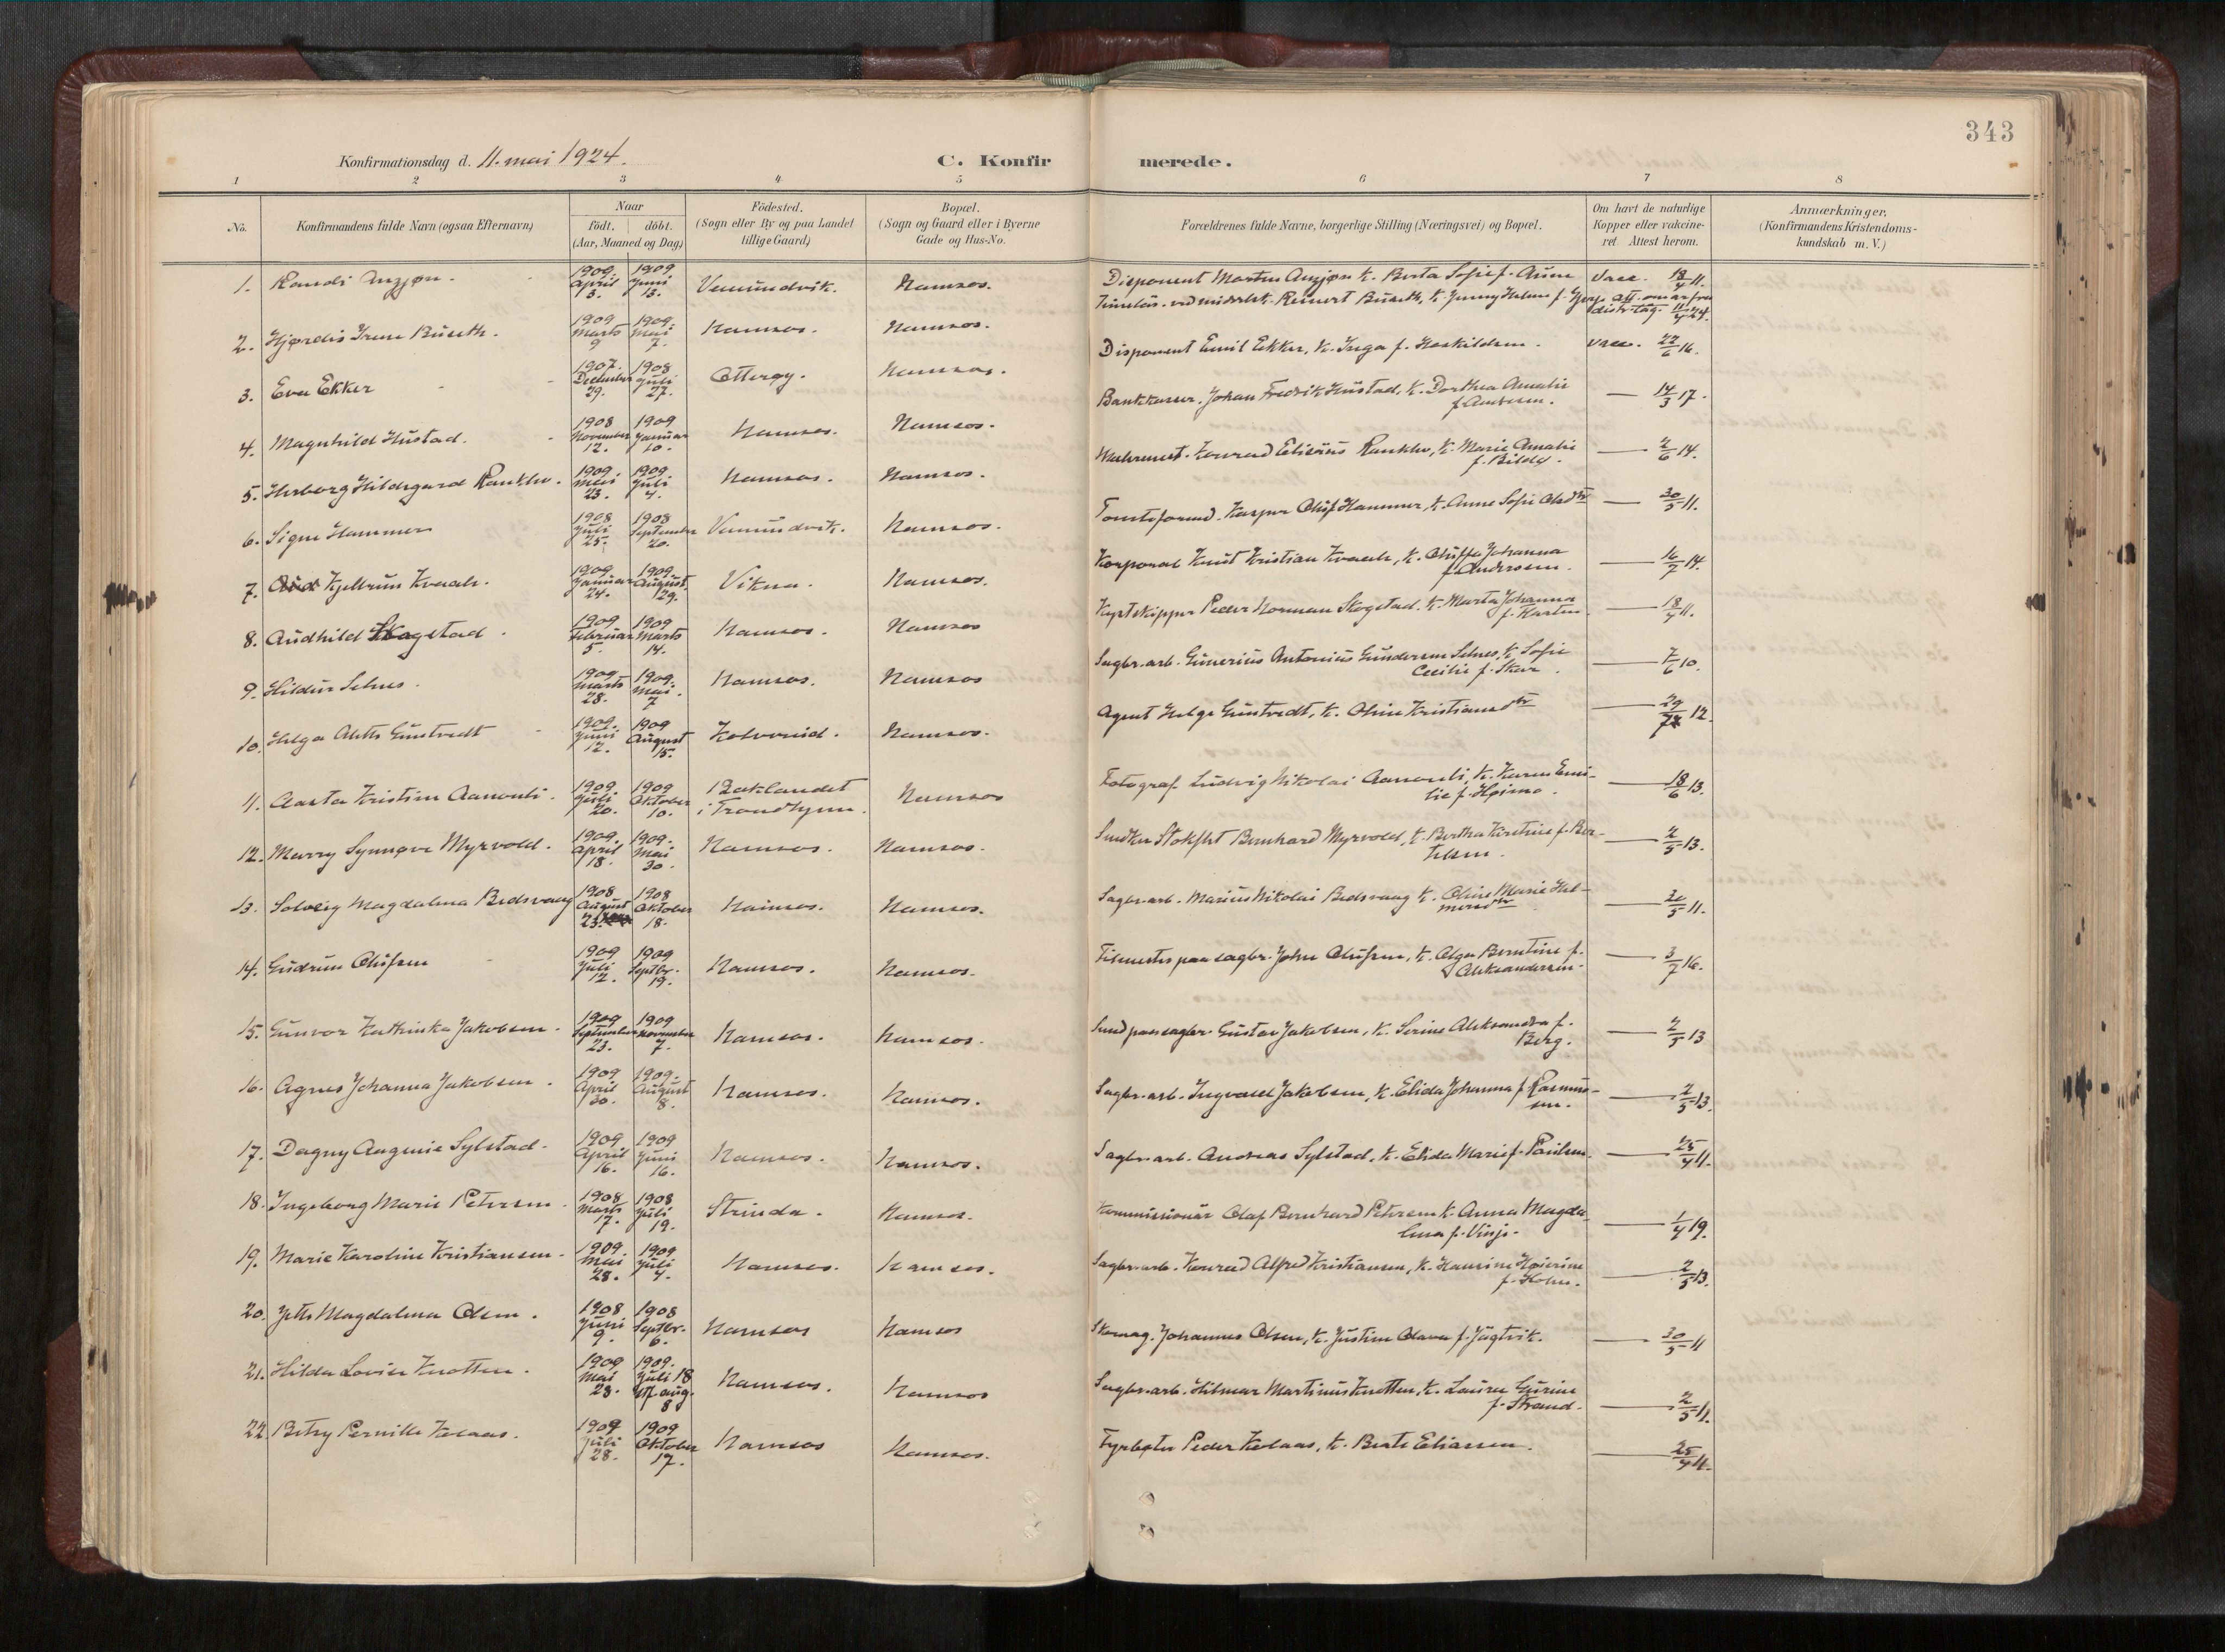 343
Konfirmationsdag d. 11. mai 1924.
C. Konfirmerede.
1 2 3 4 5 6 7 8
No.
Konfirmandens fulde Navn (ogsaa Efternavn)
Naar
födt. döbt.
(Aar, Maaned og Dag)
Födested.
(Sogn eller By og paa Landet
tillige Gaard)
Bopæl.
(Sogn og Gaard eller i Byerne
Gade og Hus-No.
Forældrenes fulde Navne, borgerlige Stilling (Næringsvei) og Bopæl.
Om havt de naturlige
Kopper eller vakcine-
ret Attest herom.
Anmærkninger,
(Konfirmandens Kristendoms-
kundskab m. V.)
1. Randi Anzjøn. 1909. April 13. 1909. Juni 13. Vemundvik. Namsos. Disponent Morten Anzjøn k. Berta Sofie f. Aune vacc. 18/4 11.
2. Hjørdis Irene Buseth. 1909 Marts 9 1909. Mai 7. Namsos. Namsos. Reinert Buseth, k. Jenny Helene f.
3. Eva Ekker 1907. December 29. 1908 Juli 27. Otterøy. Namsos. Disponent Emil Ekker, k. Inga f. Haskildsen. vacc. 22/6 16.
4. Magnhild Hustad. 1908 November 12. 1909 Januar 10. Namsos. Namsos. Bankkasser. Johan Fredrik Hustad, k. Dorthea Amalie
f. Andersen. — 14/3 17.
5. Herborg Hildegard Ranklev. 1909. Mai 23. 1909. Juli 4. Namsos. Namsos. Konrad Elisæus Ranklev, k. Marie Amalie
— 2/6 14.
6. Signe Hammer 1908 Juli 25. 1908 September 20. Vemundvik. Namsos. Tomteformd. Kasper Oluf Hammer, k. Anne Sofie Olsdtr — 30/5 11.
7. Kjellrun Kvaale. 1909 Januar 24. 1909. August 29. Vikna. Namsos. Korporal Knut Kristian Kvaale, k. Oluffa Johanna
f. Anderssen. — 16/7 14.
8. Audhild Skogstad. 1909 Februar 5. 1909 Marts 14. Namsos. Namsos Peder Norman Skogstad. k. Marta Johanna
— 18/4 11.
9. Hildur Selnes. 1909 Marts 28. 1909. Mai 7 Namsos. Namsos Sagbr. arb. Gunerius Antonius Gundersen Selnes, k. Sofie
Cecilie f. Skar. — 7/6 10.
10. Helga Alette Gustvedt 1909. Juni 12. 1909 August 15. Kolvereid. Namsos. Agent Helge Gustvedt, k. Oline Kristiansdtr — 12.
11. Aasta Kristine Aanonli. 1909 Juli 20. 1909 Oktober 10. Baklandet
i Trondhjem. Namsos Fotograf Ludvig Nikolai Aanonli, k. Karen Emi-
lie f. Høimo. — 18/6 13.
12. Marry Synnøve Myrvold. 1909. April 18. 1909. Mai 30. Namsos. Namsos. Snedker Stokflet Bernhard Myrvold, k. Bertha Kirstine f. Ber-
telsen. — 2/5 13.
13. Solveig Magdalena Bedsvaag 1908 August 23. 1908 Oktober 18. Namsos. Namsos. Sagbr. arb. Marius Nikolai Bedsvaag k. Oline Marie Hel-
mersdtr — 30/5 11.
14. Gudrun Olufsen 1909 Juli 12. 1909 Septbr. 19. Namsos. Namsos. Filemester paa sagbr. John Olufsen, k. Olga Berntine f.
Aleksandersen. — 3/7 16.
15. Gunvor Kathinka Jakobsen. 1909 September 23. 1909 November 7. Namsos. Namsos. Smed paa sagbr. Gustav Jakobsen, k. Serine Aleksandra f.
Berg. — 2/5 13
16. Agnes Johanna Jakobsen. 1909 April 30. 1909. August 8. Namsos. Namsos. Sagbr. arb. Ingvald Jakobsen, k. Elida Johanna f. Rasmus-
sen. — 2/5 13.
17. Dagny Augenie Sylstad. 1909 April 16. 1909 Juni 16. Namsos. Namsos. Sagbr. arb. Andreas Sylstad, k. Elida Marie f. Paulsen. — 25/4 11.
18. Ingeborg Marie Petersen. 1908 Marts 17. 1908 Juli 19. Strinda. Namsos. Kommissionær Olaf Bernhard Petersen k. Anna Magda-
lena f. Vinje. — 1/4 19.
19. Marie Karoline Kristiansen. 1909. Mai 28. 1909 Juli 4. Namsos. Namsos. Sagbr. arb. Konrad Alfred Kristiansen, k. Hansine
f. Holm. — 2/5 13.
20. Jette Magdalena Olsen. 1908 Juni 9. 1908 Septbr. 6. Namsos Namsos Skomag. Johannes Olsen, k. Justine Olava f. Jagtvik. — 30/5 11
21. Hilda Lovise Knotten. 1909 Mai 28. 1909. Juli 18 aug. 8 Namsos. Namsos Sagbr. arb. Hilmar Martinus Knotten, k. Laura Gurine
f. Strand. — 2/5 11.
22 Betsy Pernille Kolaas. 1909 Juli 28. 1909 Oktober 17. Namsos Namsos. Fyrbøter Peder Kolaas, k. Berte Eliassen. — 25/4 11.